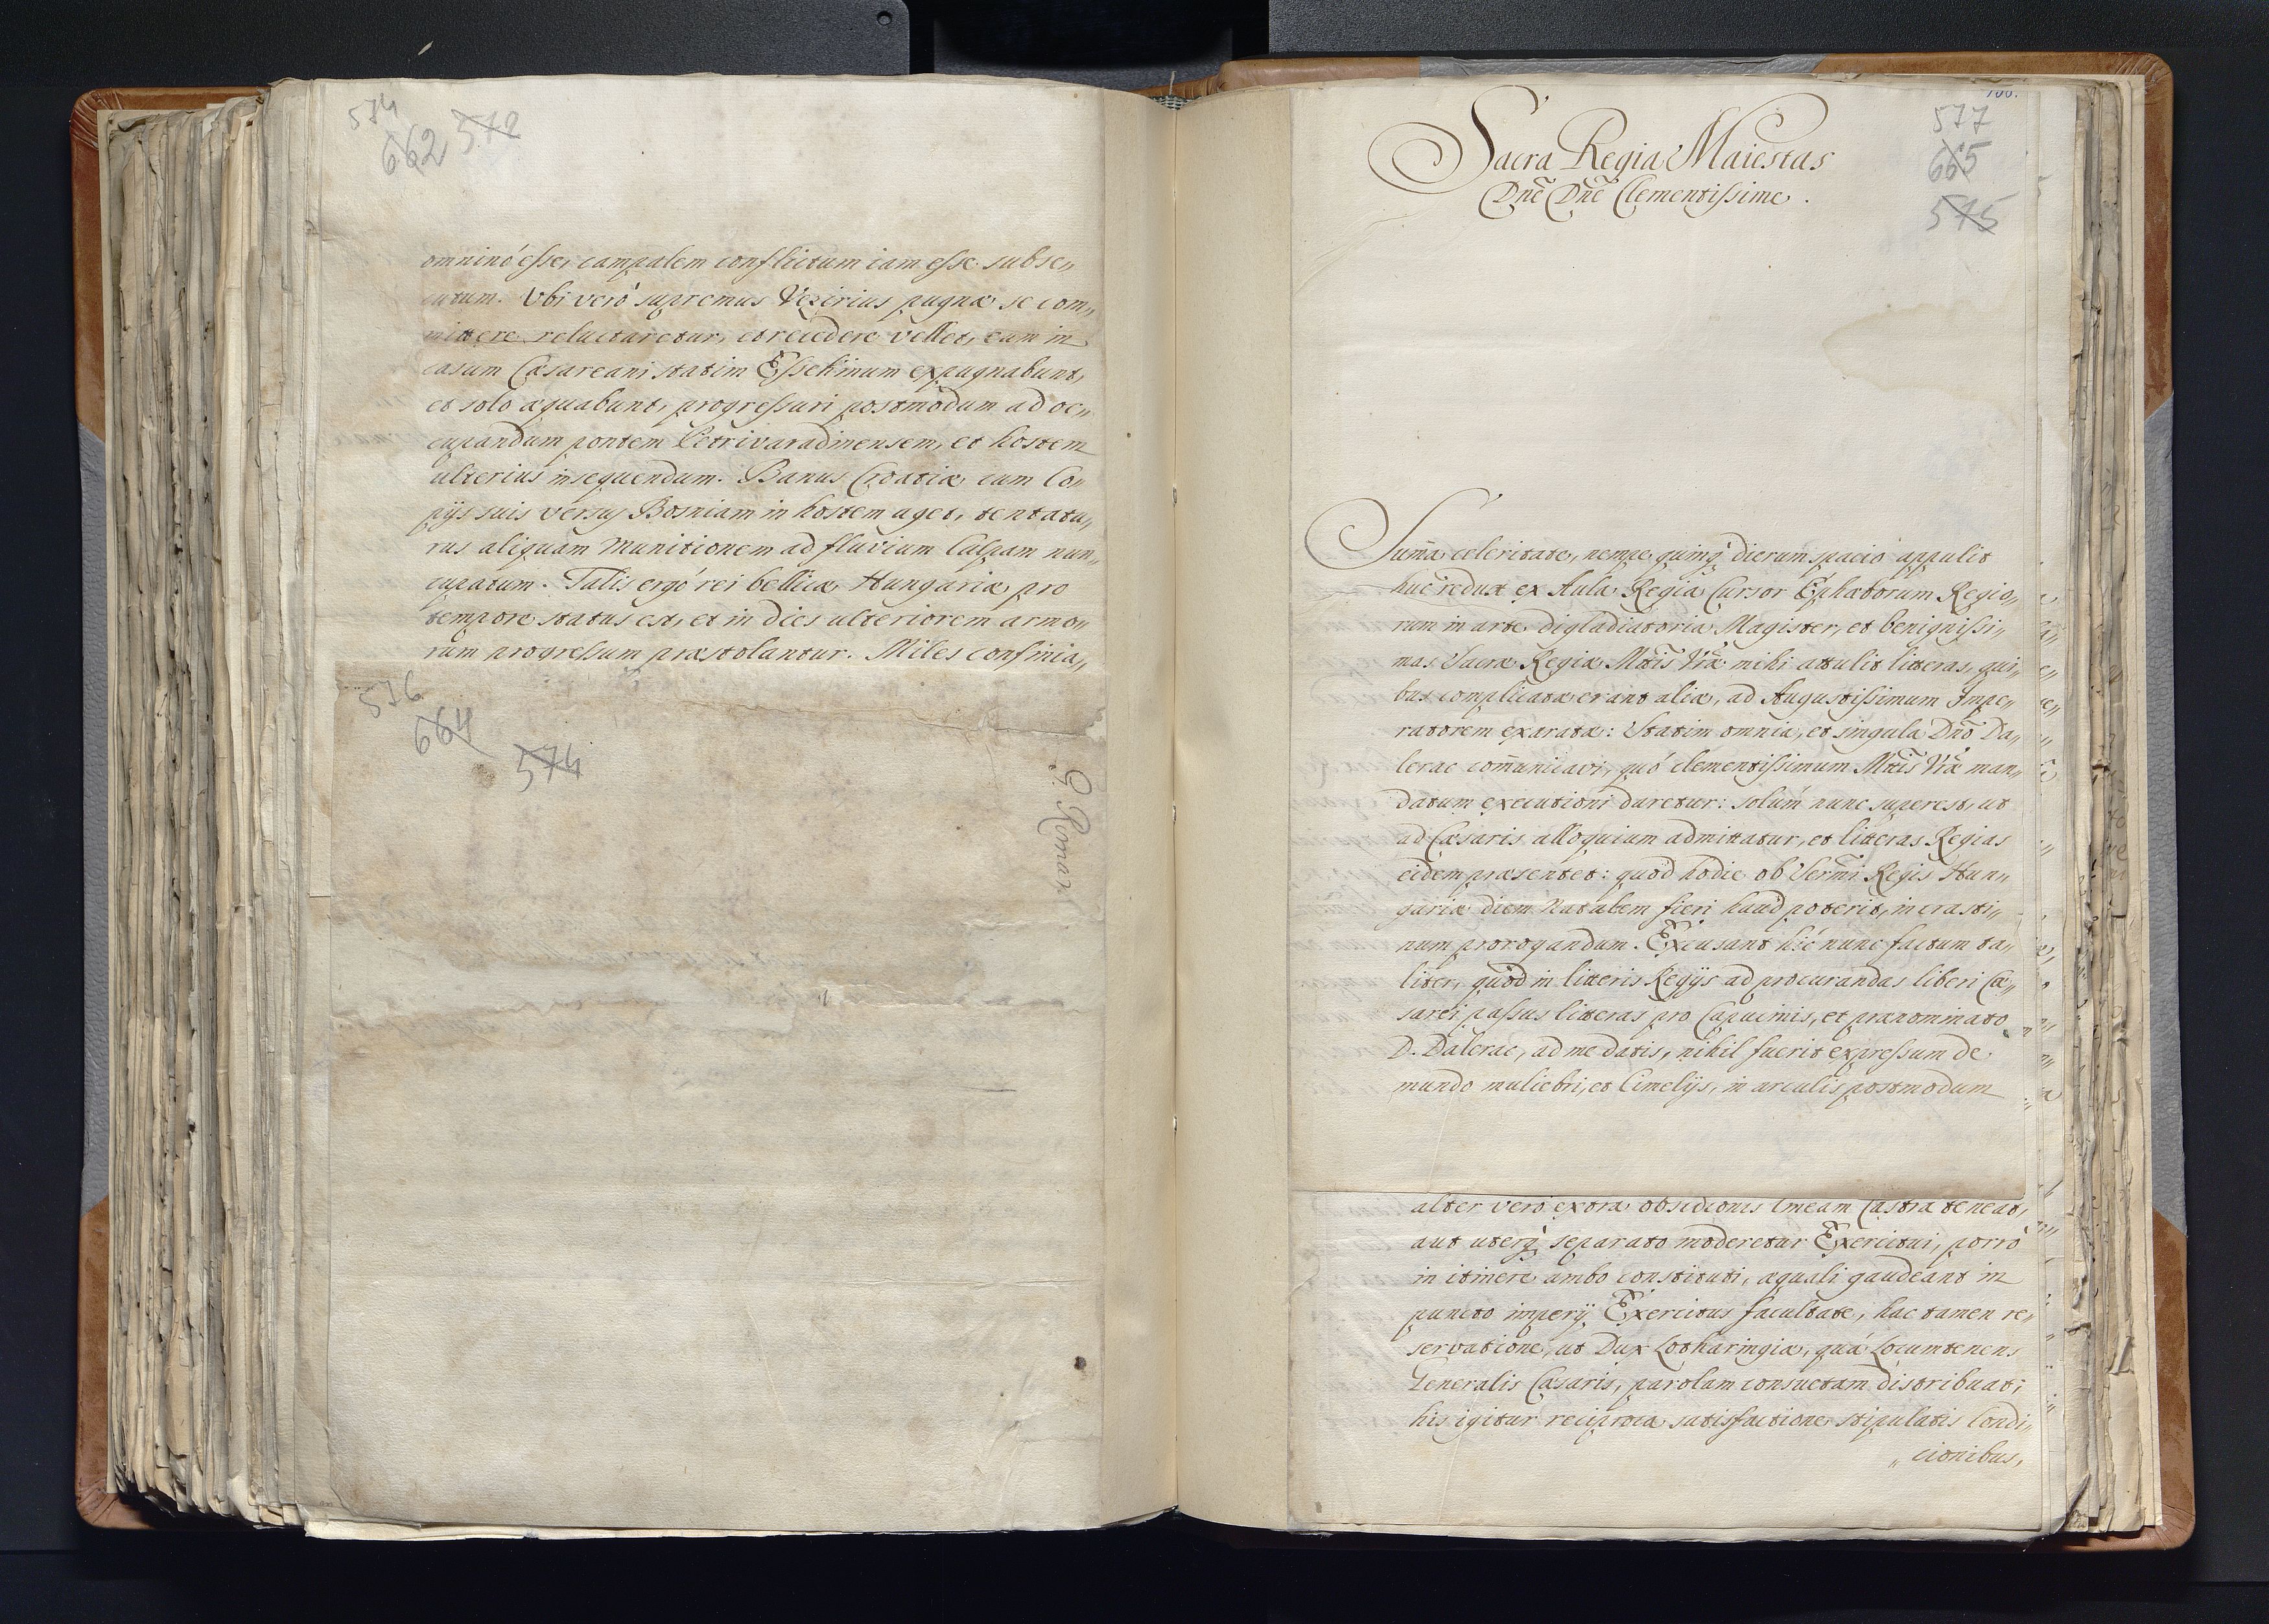 574
662 572
omninò esse, campalem conflictum iam esse subse„
cutum. Vbi verò supremus Vezirius pugnæ se com„
mittere reluctaretur, et recedere vellet, eum in
casum Cæsareani statim Essekinum expugnabunt,
et solo æquabunt, progressuri postmodum ad oc„
cupandum pontem Petrivaradinensem, et hostem
ulterius insequendum. Banus Croatiæ cum Co„
pijs suis versus Bosniam in hostem aget, tentatu„
rus aliquam Munitionem ad fluvium Culpam nun„
cupatum. Talis ergò rei bellicæ Hungariæ pro
tempore status est, et in dies ulteriorem armo„
rum progressum præstolantur. Miles confinia„
576
664
574
P. Roman
577
665
575
Sacra Regia Maiestas
Dñe Dñe Clementissime.
Sum̃a celeritate, nempe quinq́ dierum spacio appulit
huc redux ex Aula Regia Cursor Ephæborum Regio„
rum in arte digladiatoria Magister, et benignissi„
mas Sacræ Regiæ Mtis Vræ mihi attulit litteras, qui„
bus complicatæ erant aliæ, ad Augustissimum Impe„
ratorem exaratæ: Statim omnia, et singula Dño Da„
lerac com̃unicavi, quò clementissimum Mtis Vræ man„
datum executioni daretur: solùm nunc superest, ut
ad Cæsaris alloquium admittatur, et litteras Regias
eidem præsentet: quod hodie ob Sermi Regis Hun„
gariæ diem Natalem fieri haud poterit, in crasti„
num prorogandum. Excusant hìc nunc factum ta„
liter, quòd in litteris Regijs ad procurandas liberi Cæ„
sarei passus litteras pro Capucinis, et prænominato
D. Dalerac, ad me datis, nihil fuerit expressum de
mundo muliebri, et Cimelijs, in arculis postmodum
alter verò extra obsidionis lineam Castra teneat,
aut uterq́ separato moderetur Exercitui, porrò
in itinere ambo constituti, æquali gaudeant in
puncto imperij Exercitus facultate, hac tamen re„
servatione, ut Dux Lotharingiæ, quà Locumtenens
Generalis Cæsaris, parolam consuetam distribuat;
his igitur reciproca satisfactione stipulatis Condi„
„cionibus,